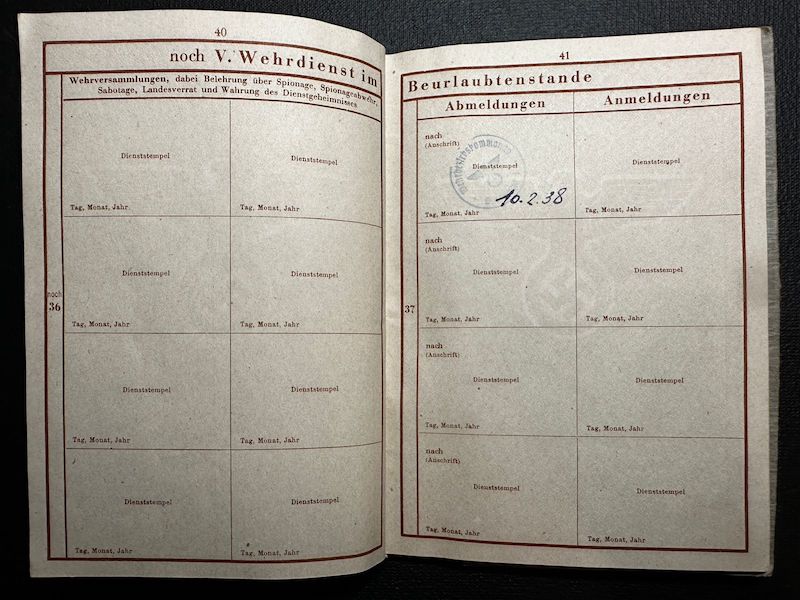 40
noch V. Wehrdienst im
Wehrversammlungen, dabei Belehrung über Spionage, Spionageabwehr,
Sabotage, Landesverrat und Wahrung des Dienstgeheimnisses
Dienststempel
Dienststempel
Tag, Monat, Jahr
Tag, Monat, Jahr
Dienststempel
Dienststempel
noch
36
Tag, Monat, Jahr
Tag, Monat, Jahr
Dienststempel
Dienststempel
Tag, Monat, Jahr
Tag, Monat, Jahr
Dienststempel
Dienststempel
Tag, Monat, Jahr
Tag, Monat, Jahr
41
Beurlaubtenstande
Abmeldungen
Anmeldungen
nach
(Anschrift)
Wehrbezirkskommando
Dienststempel
Dienststempel
10.2.38
Tag, Monat, Jahr
Tag, Monat, Jahr
nach
(Anschrift)
Dienststempel
Dienststempel
37
Tag, Monat, Jahr
Tag, Monat, Jahr
nach
(Anschrift)
Dienststempel
Dienststempel
Tag, Monat, Jahr
Tag, Monat, Jahr
nach
(Anschrift)
Dienststempel
Dienststempel
Tag, Monat, Jahr
Tag, Monat, Jahr